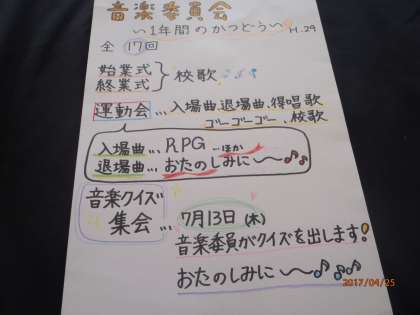 音楽委員会
〜1年間のかつどう〜 H.29
全17回
始業式
終業式 } 校歌♪♪♪
運動会…入場曲、退場曲、得唱歌
ゴーゴーゴー、校歌
入場曲…RPG…ほか
退場曲…おたのしみに〜〜♪♪
音楽クイズ
集会… 7月13日(木)
音楽委員がクイズを出します!
おたのしみに〜♪♪♪
2017/04/25